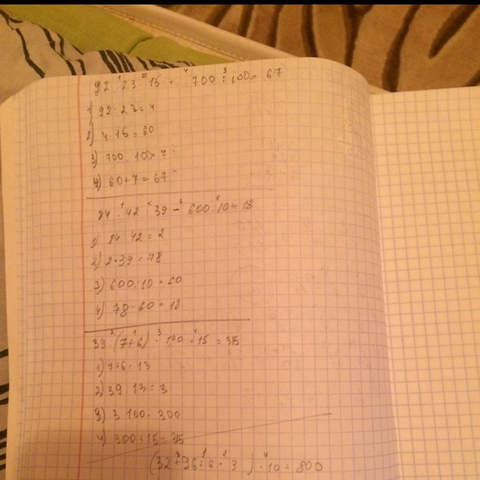 92 : 23 · 15 + 700 : 100 = 67
1) 92 : 23 = 4
2) 4 · 15 = 60
3) 700 : 100 = 7
4) 60 + 7 = 67
84 : 42 · 39 - 600 : 10 = 18
1) 84 : 42 = 2
2) 2 · 39 = 78
3) 600 : 10 = 60
4) 78 - 60 = 18
39 : (7+6) · 100 + 15 = 315
1) 7+6 = 13
2) 39 : 13 = 3
3) 3 · 100 = 300
4) 300 + 15 = 315
(32 + 96 : 6 · 3) · 10 = 800